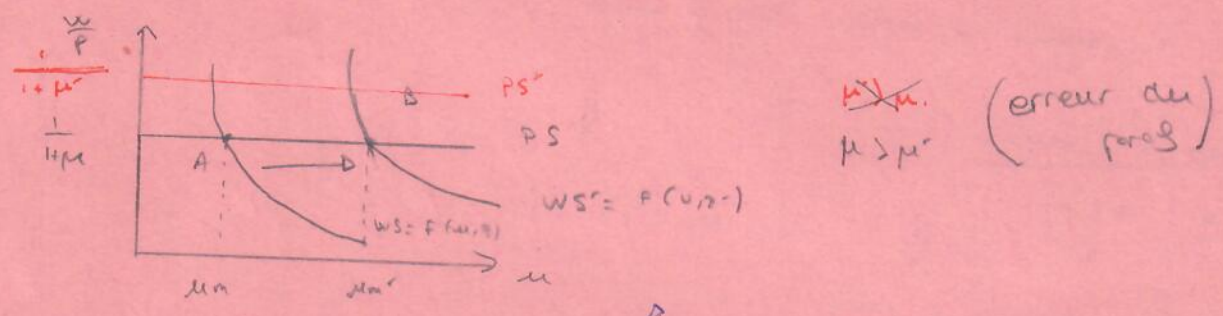 w/P
1/1+μ'
1/1+μ
PS'
B
PS
A
D
WS' = F(u,z')
WS = F(u,z)
un
un'
u
μ'>μ.
μ>μ'
(erreur du
prof)